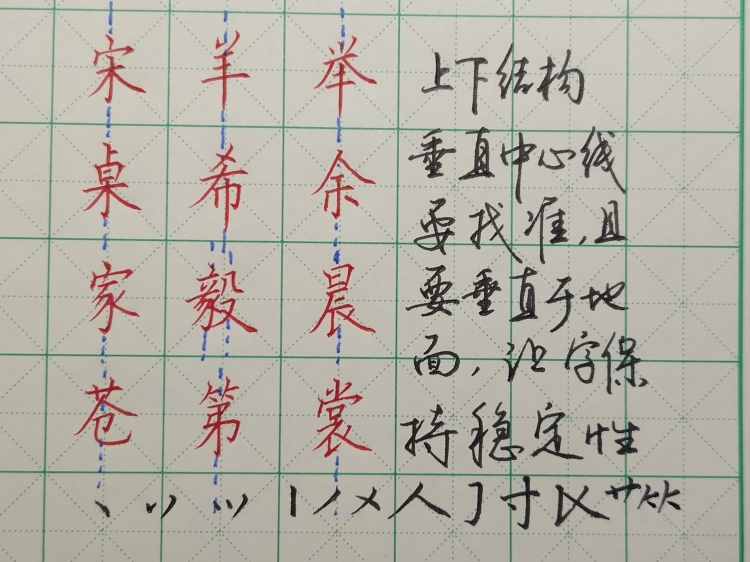 宋羊举
桌希余
家毅晨
苍第裳
上下结构
垂直中心线
要找准,且
要垂直于地
面,让字保
持稳定性
人寸